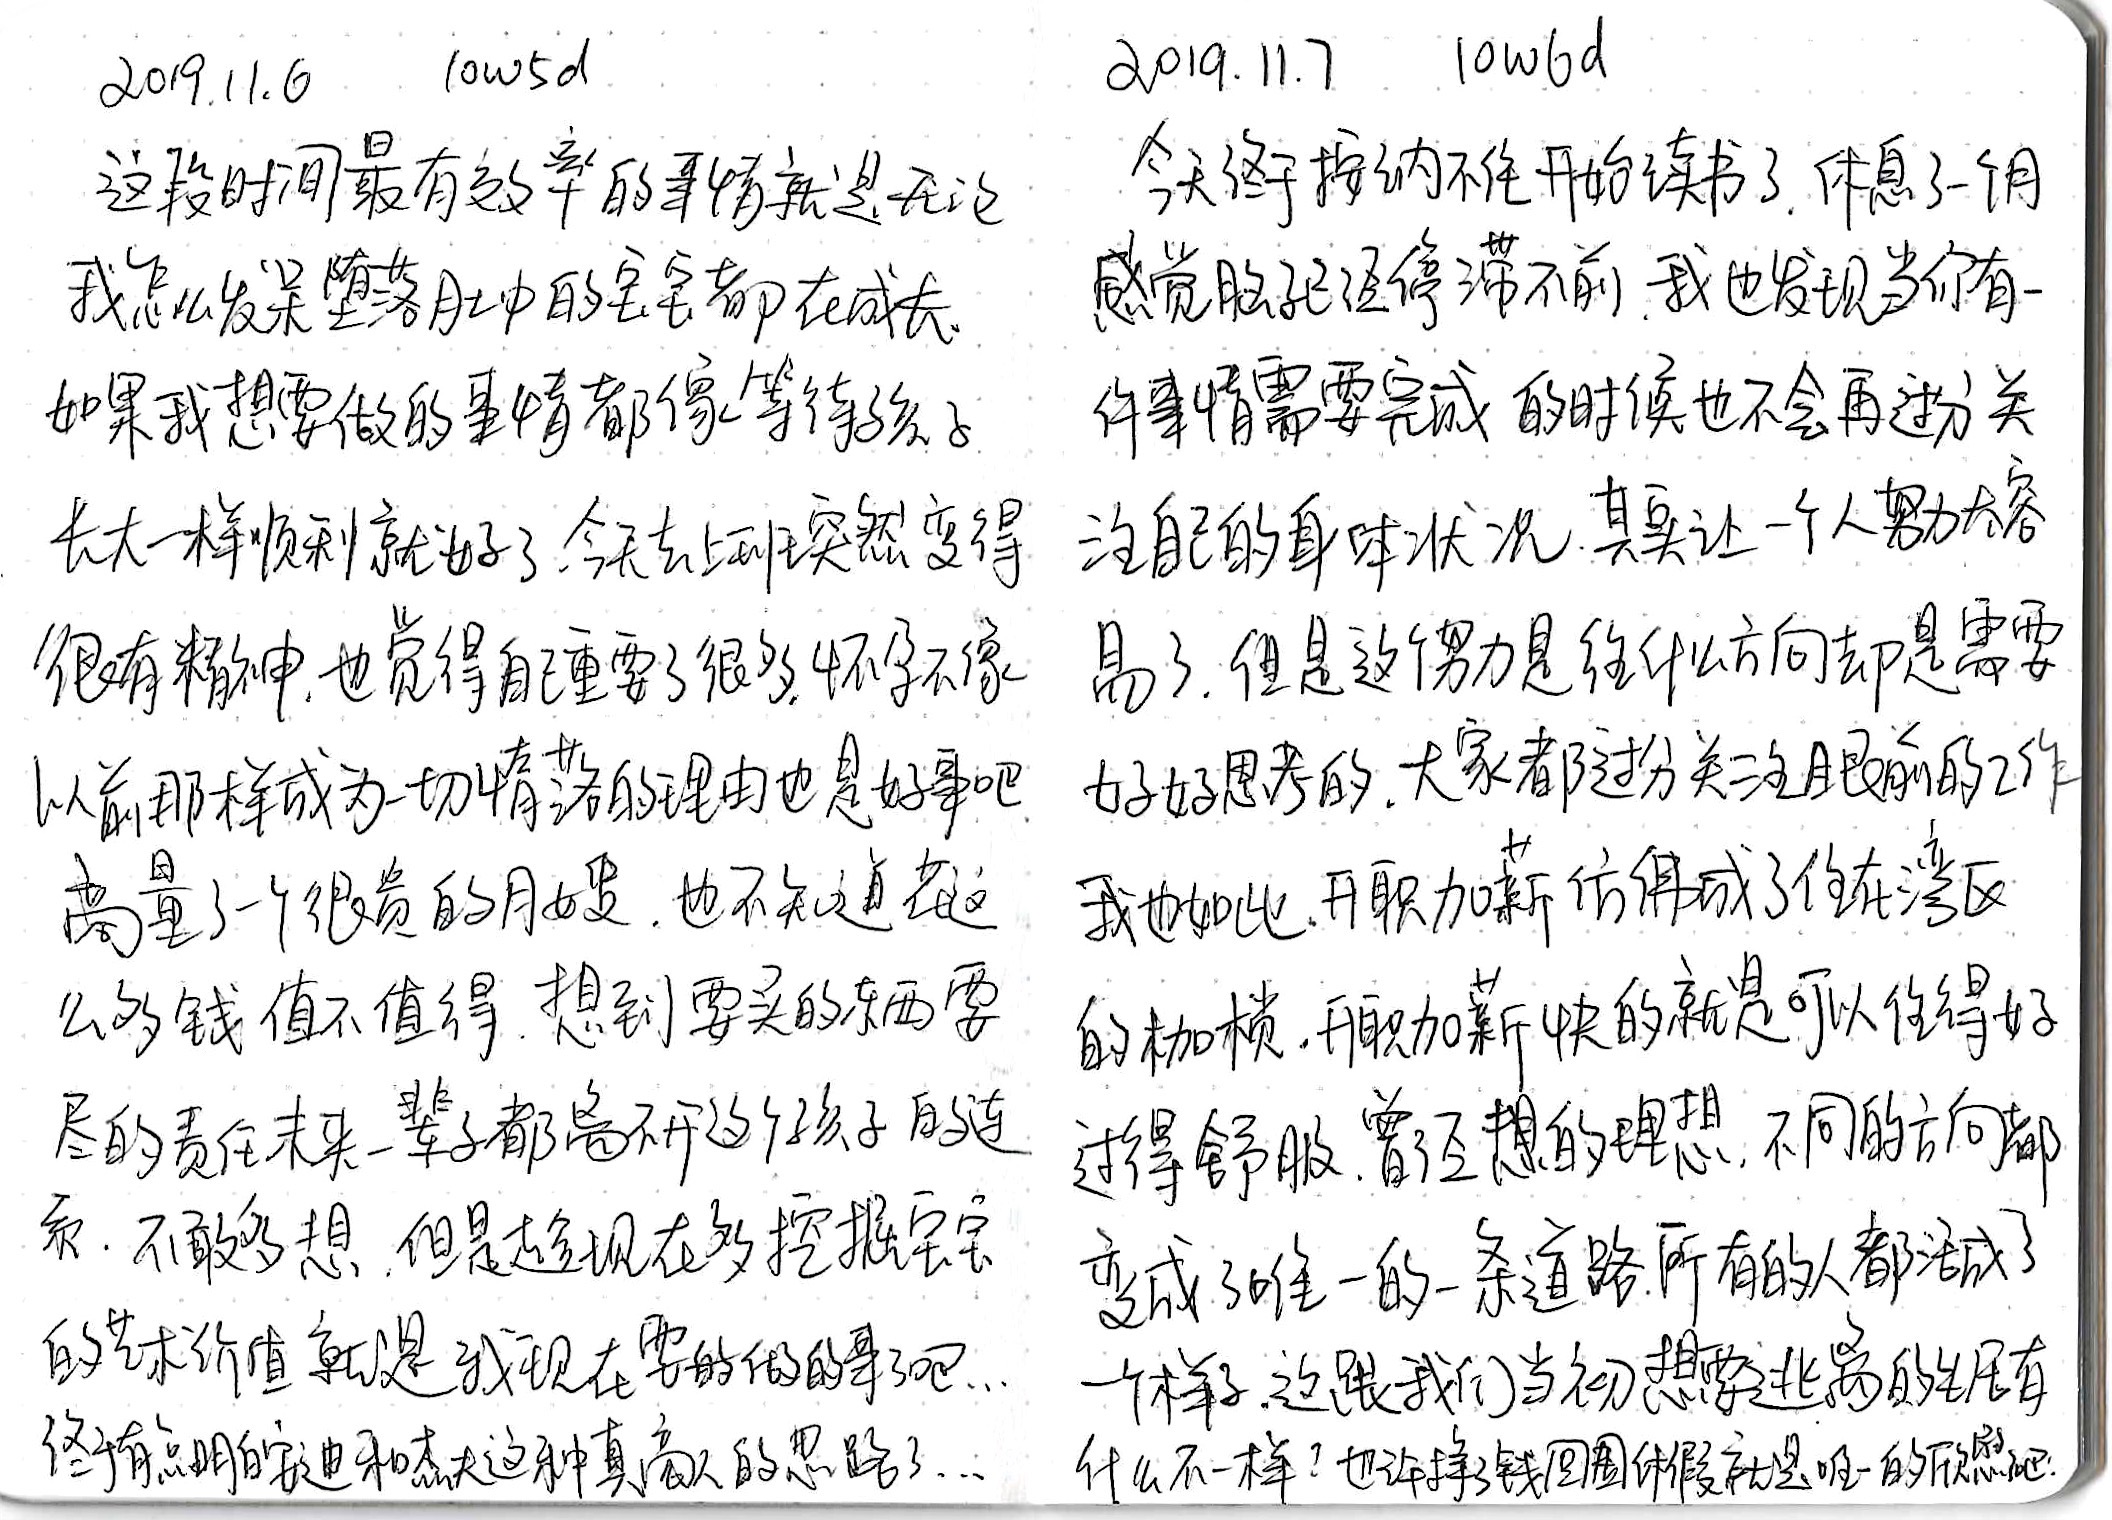 2019.11.6 10w5d
这段时间最有效率的事情就是无论
我怎么发呆堕落肚中的宝宝都在成长.
如果我想要做的事情都像等待孩子
长大一样顺利就好了.今天去上班突然变得
很有精神.也觉得自己重要了很多.怀孕不像
以前那样成为一切堕落的理由也是好事吧
商量了一个很贵的月嫂.也不知道花这
么多钱值不值得.想到要买的东西要
尽的责任未来一辈子都离不开这个孩子的连
系.不敢多想.但是趁现在多挖掘宝宝
的艺术价值就是我现在要的做的事了吧...
终于有点明白安迪和杰夫这种真商人的思路了...
2019.11.7 10w6d
今天终于按纳不住开始读书了.休息了一个月
感觉脑子已经停滞不前.我也发现当你有一
件事情需要完成的时候也不会再过分关
注自己的身体状况.其实让一个人努力太容
易了.但是这个努力是往什么方向却是需要
好好思考的.大家都过分关注眼前的工作
我也如此.升职加薪仿佛成了住在湾区
的枷锁.升职加薪快的就是可以住得好
过得舒服.曾经想的理想.不同的方向都
变成了唯一的一条道路.所有的人都活成了
一个样子.这跟我们当初想要逃离的生活有
什么不一样?也许挣了钱回国休假就是唯一的欣慰吧.